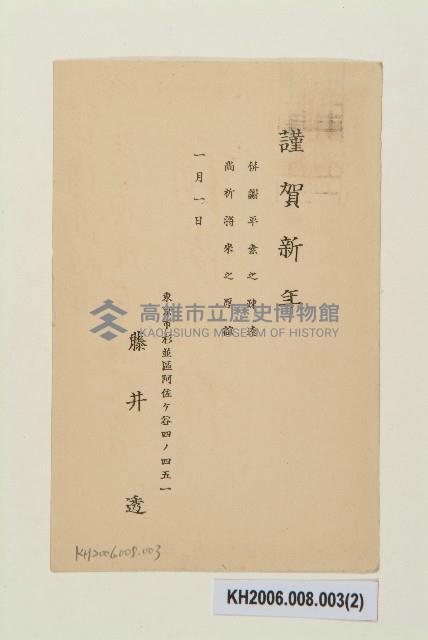 謹賀新年
併謝平素之疎遠
尚祈将来之厚誼
一月一日
東京市杉並區阿佐ケ谷四ノ四五一
藤井透
高雄市立歷史博物館
KAOHSIUNG MUSEUM OF HISTORY
KH2006.008.003
KH2006.008.003(2)